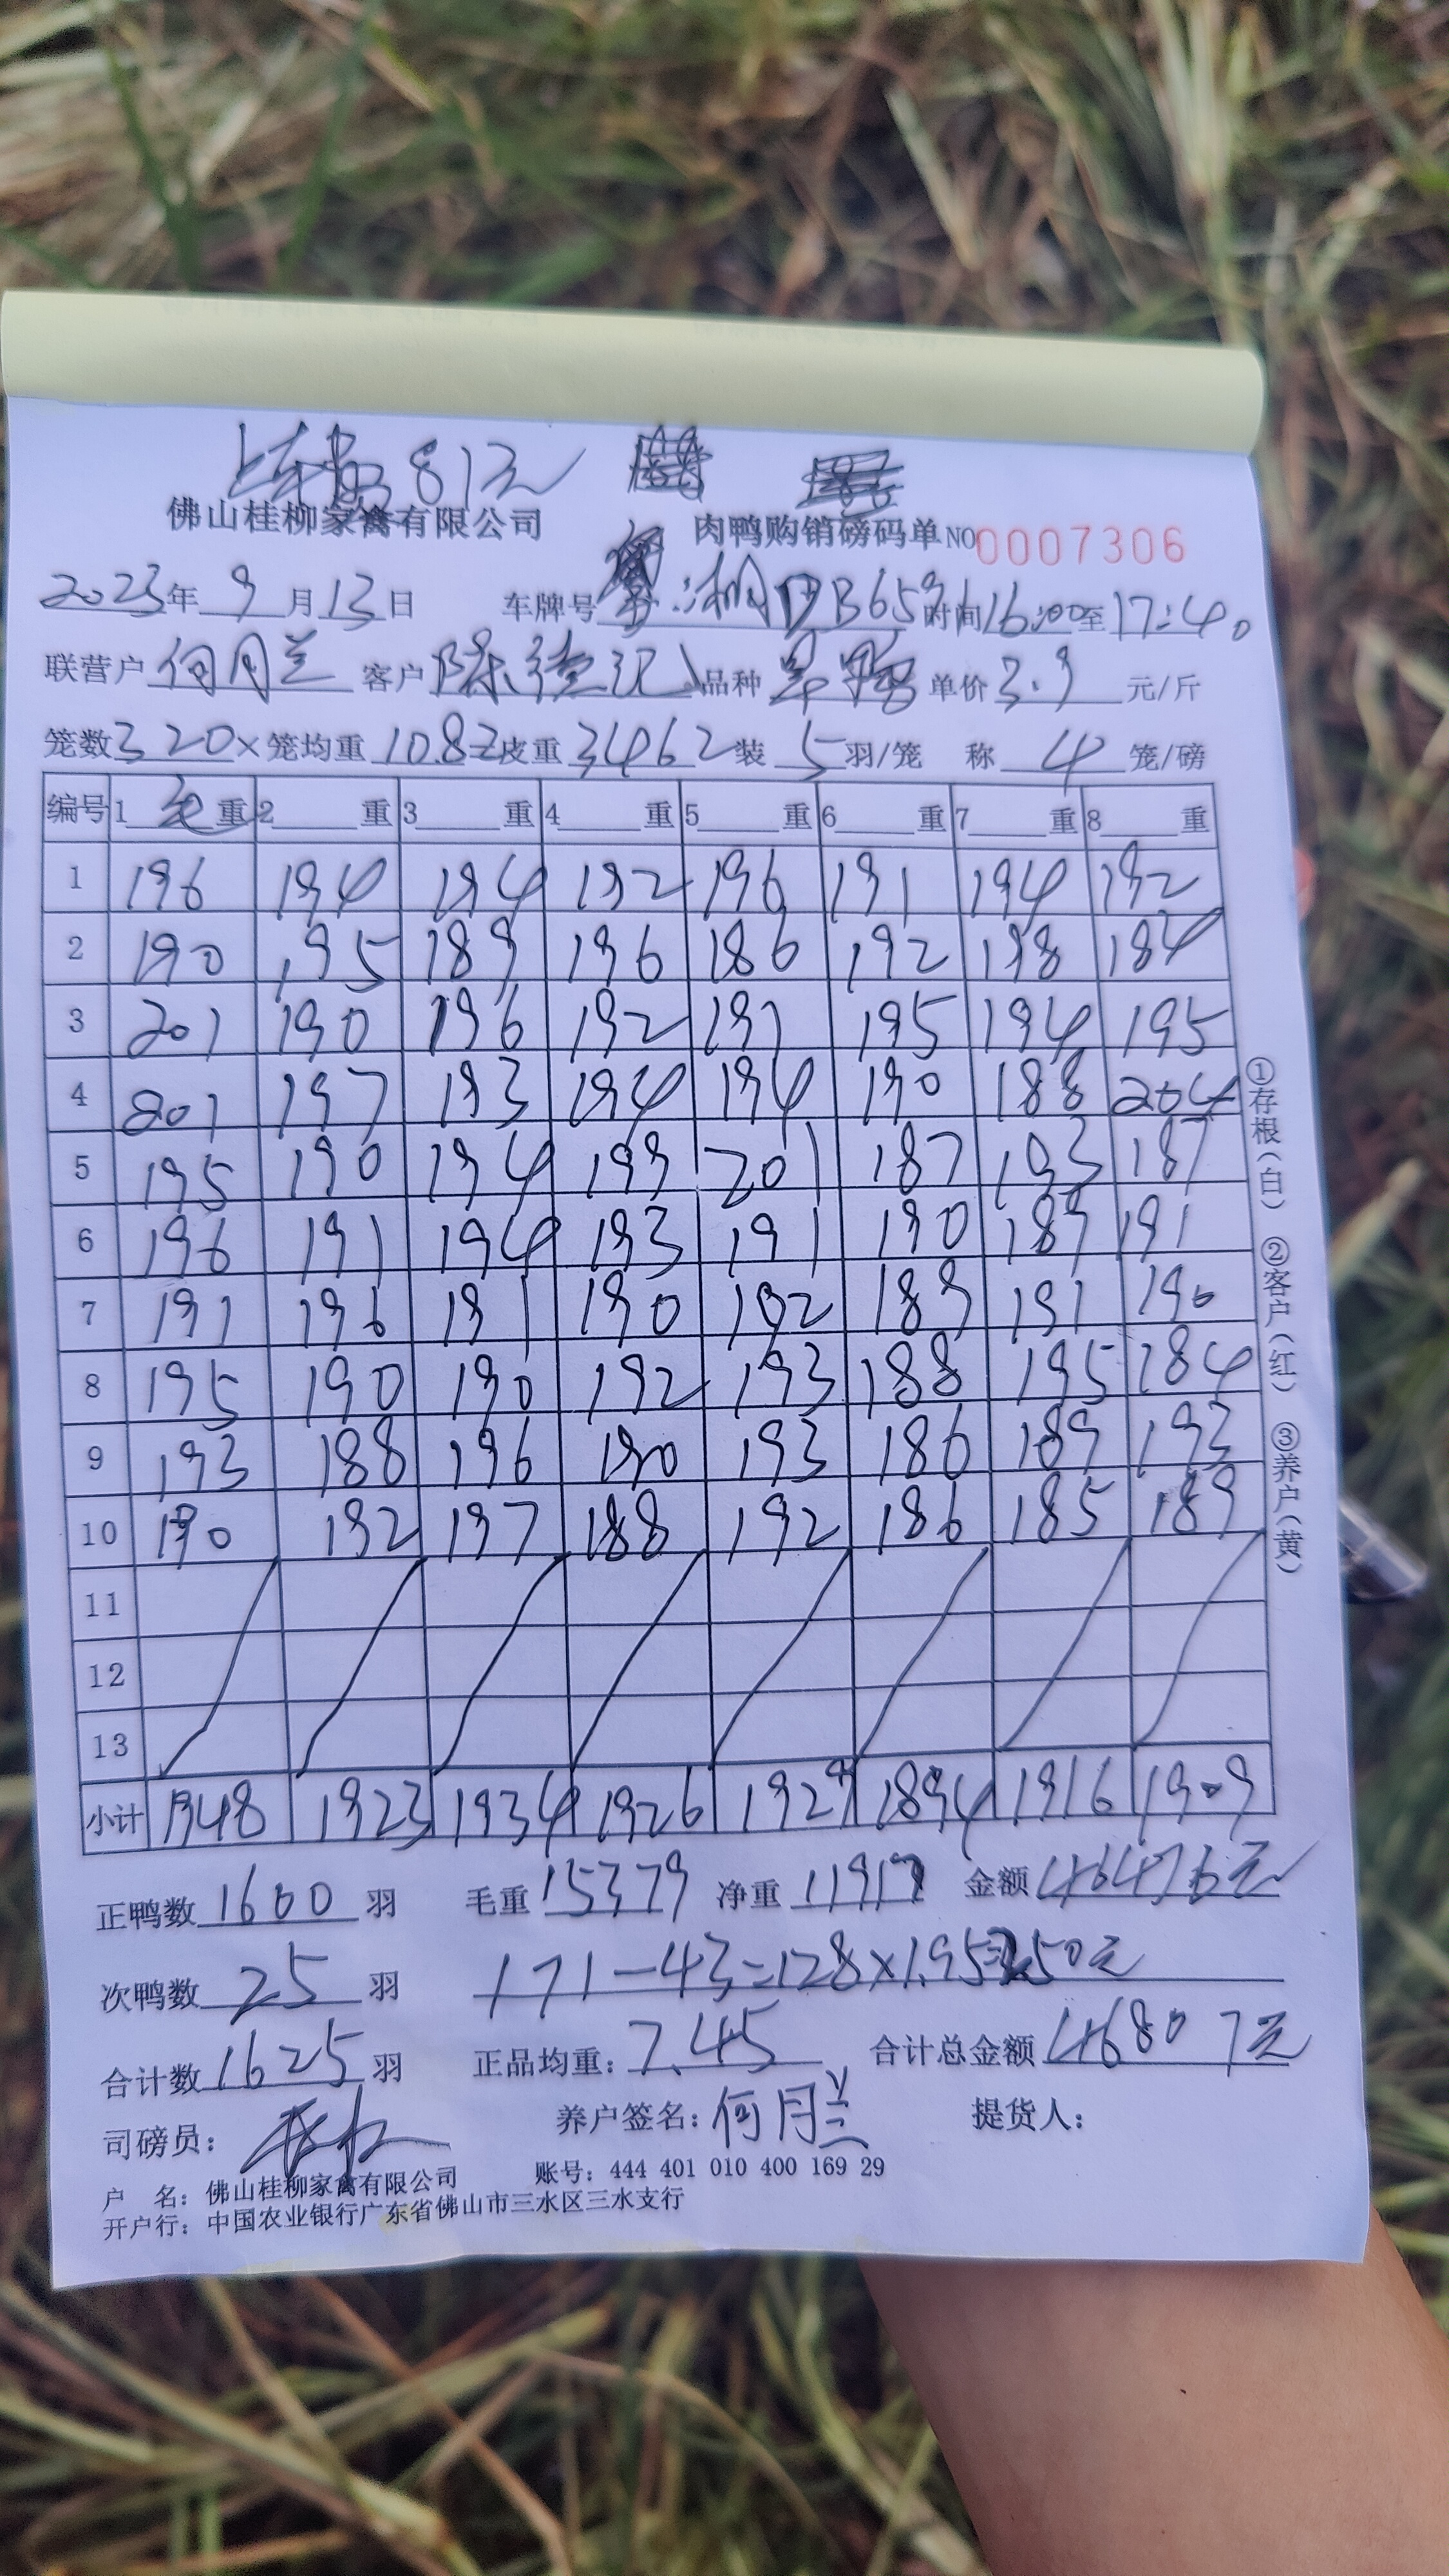 上车费 81元
佛山桂柳家禽有限公司 肉鸭购销磅码单 NO 0007306
2023年 9月 13日 车牌号 湘DB659 时间 16:00 至 17:40
联营户 何月兰 客户 陈德记 品种 旱鸭 单价 3.9 元/斤
笼数 320 × 笼均重 10.82 皮重 3462 装 5 羽/笼 称 4 笼/磅
编号 1 毛 重 2 重 3 重 4 重 5 重 6 重 7 重 8 重
1 196 194 194 192 196 191 194 192
2 190 195 189 196 186 192 198 184
3 201 190 196 192 191 195 194 195
4 201 197 193 194 194 190 188 204
5 195 190 194 199 201 187 193 187
6 196 191 194 193 191 190 189 191
7 191 196 191 190 192 189 191 190
8 195 190 190 192 193 188 195 184
9 193 188 196 190 193 186 189 193
10 190 192 197 188 192 186 185 189
11
12
13
小计 1948 1923 1934 1926 1929 1894 1916 1909
①存根(白) ②客户(红) ③养户(黄)
正鸭数 1600 羽 毛重 15379 净重 11917 金额 46476元
次鸭数 25 羽 171-43=128×1.95=250元
合计数 1625 羽 正品均重: 7.45 合计总金额 46807元
司磅员: 养户签名: 何月兰 提货人:
户 名: 佛山桂柳家禽有限公司 账号: 444 401 010 400 169 29
开户行: 中国农业银行广东省佛山市三水区三水支行